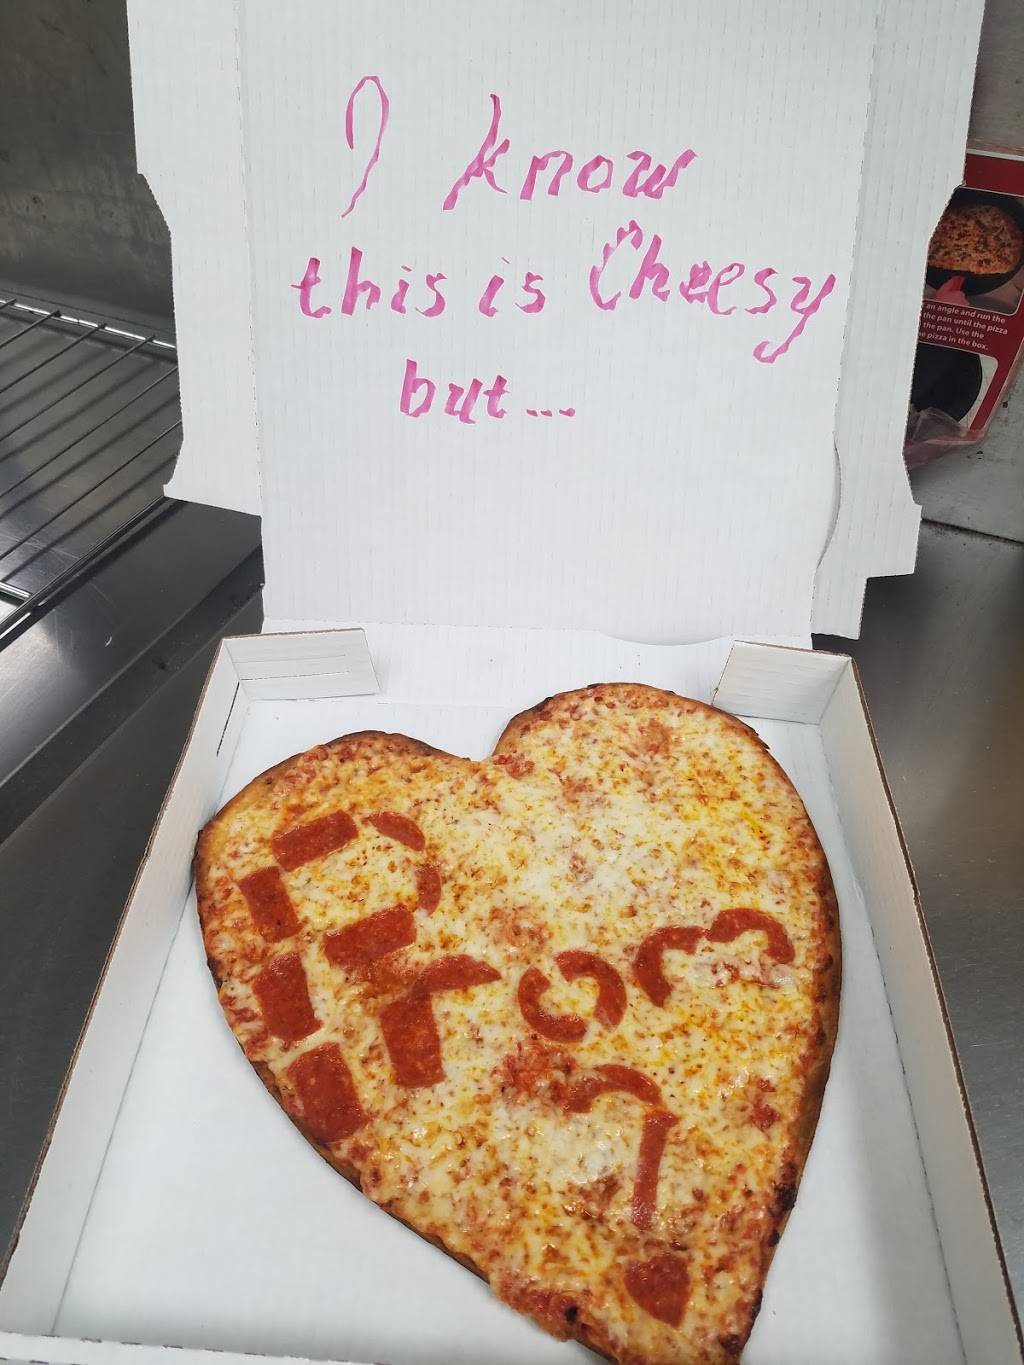 I know
this is Cheesy
but...
Prom
?
an angle and run the
the pan until the pizza
the pan. Use the
pizza in the box.